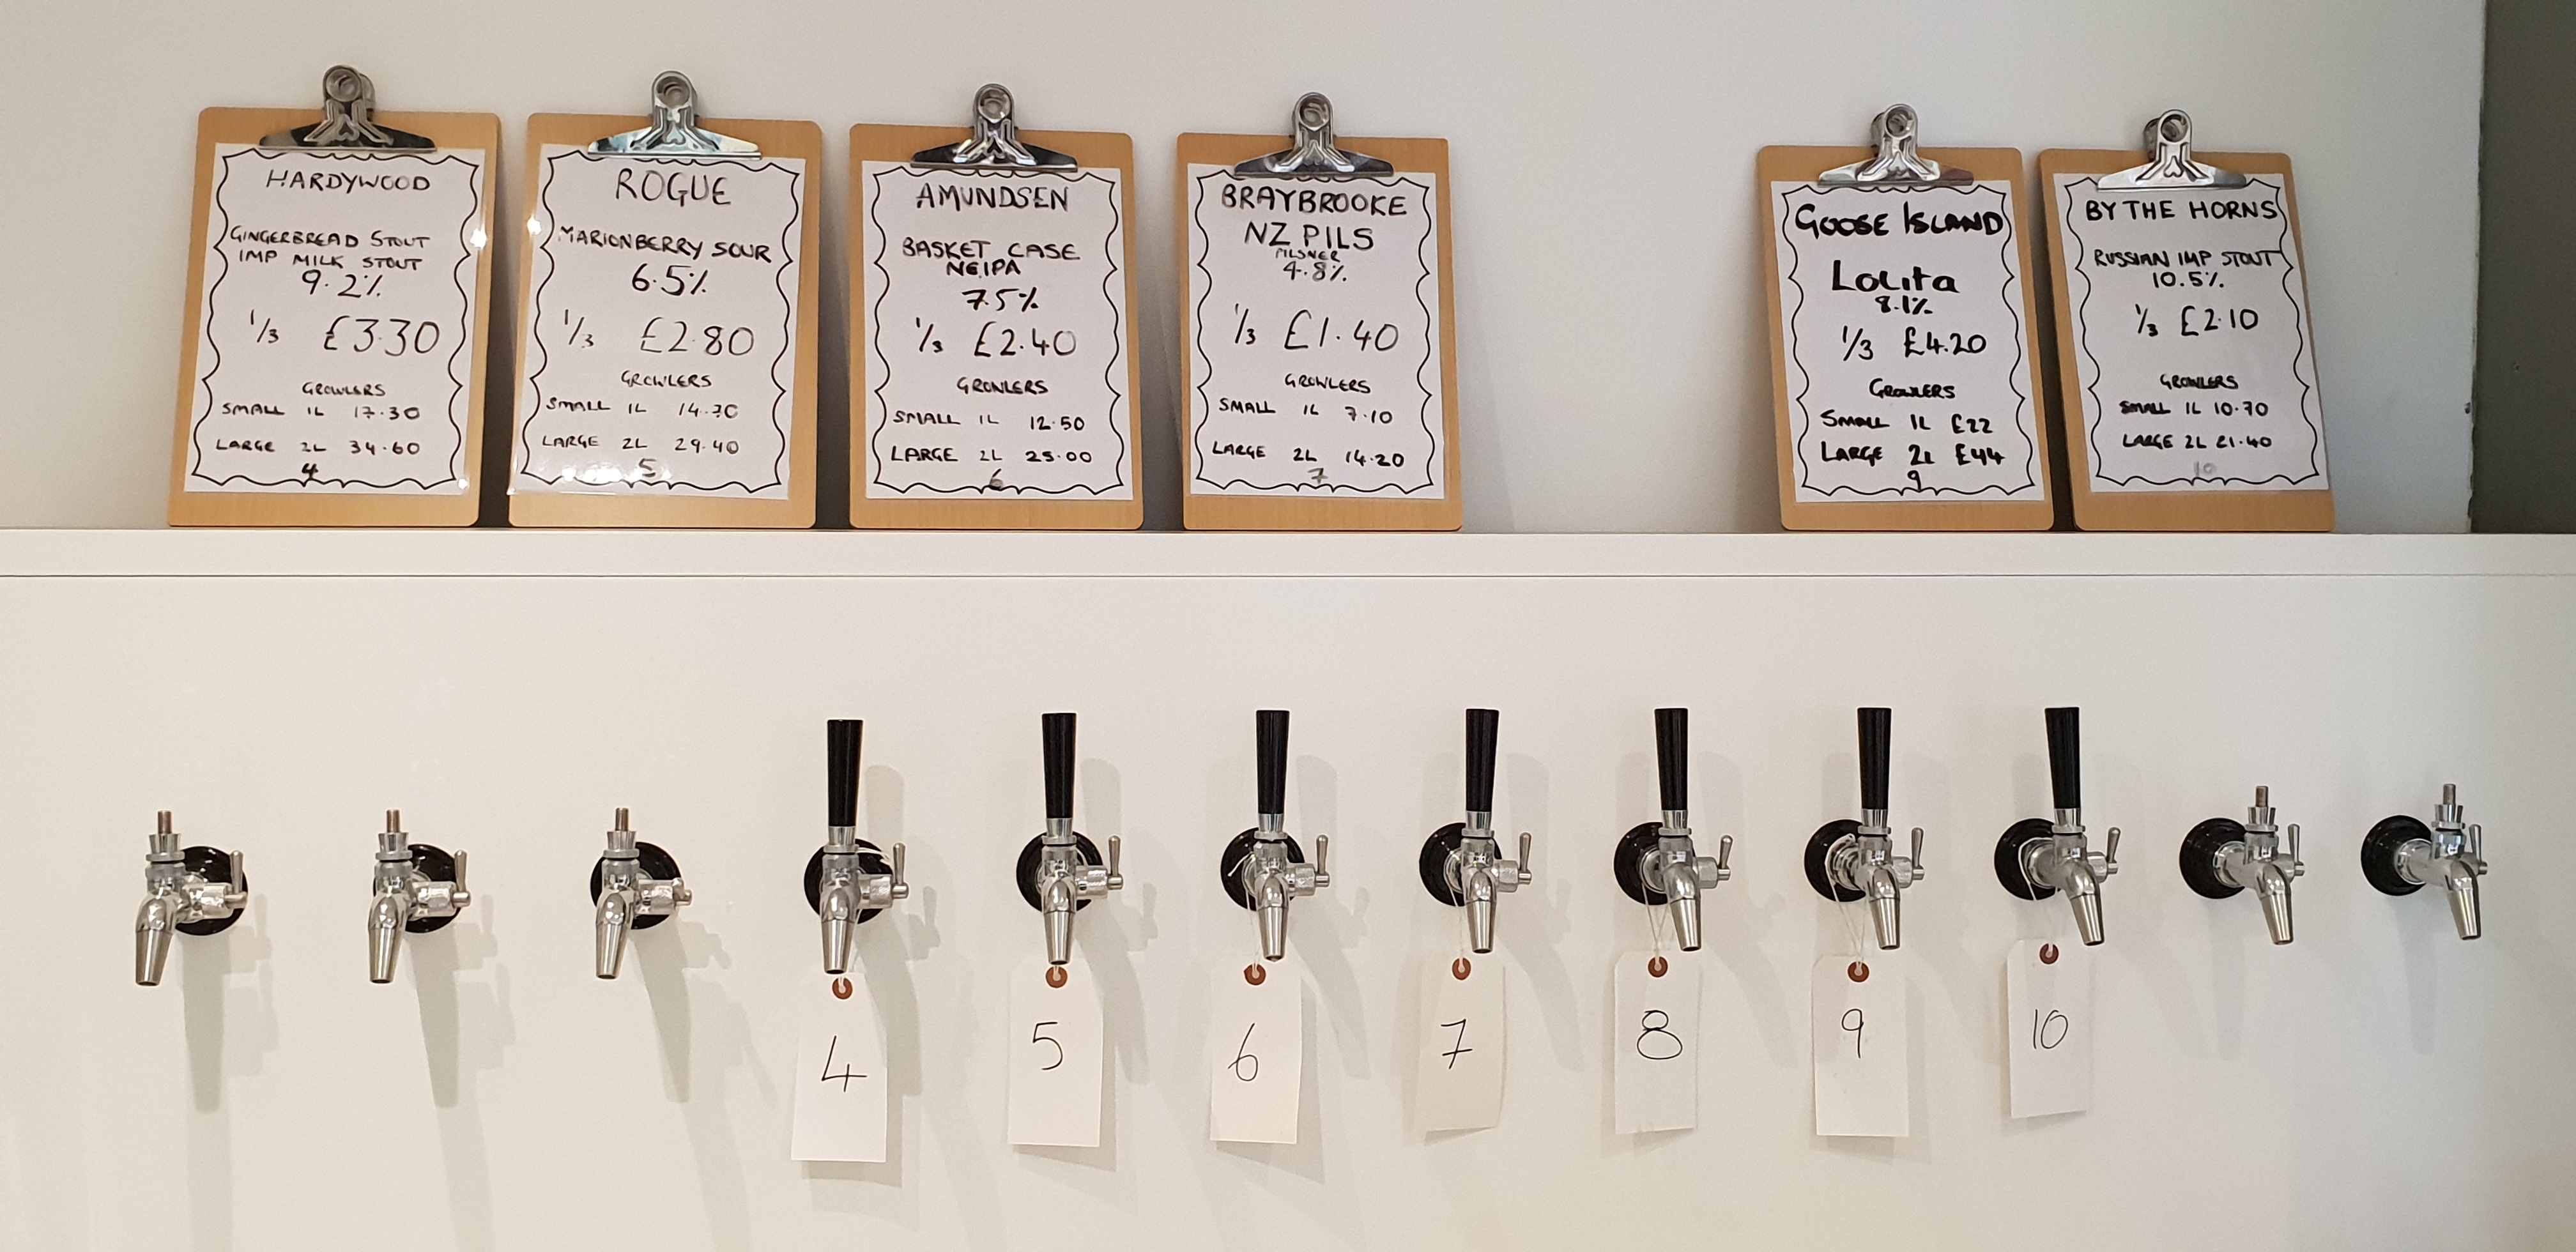 HARDYWOOD
GINGERBREAD STOUT
IMP MILK STOUT
9.2%
1/3 £3.30
GROWLERS
SMALL 1L 17.30
LARGE 2L 34.60
4
ROGUE
MARIONBERRY SOUR
6.5%
1/3 £2.80
GROWLERS
SMALL 1L 14.70
LARGE 2L 29.40
5
AMUNDSEN
BASKET CASE
NEIPA
7.5%
1/3 £2.40
GROWLERS
SMALL 1L 12.50
LARGE 2L 25.00
6
BRAYBROOKE
NZ PILS
PILSNER
4.8%
1/3 £1.40
GROWLERS
SMALL 1L 7.10
LARGE 2L 14.20
7
GOOSE ISLAND
Lolita
8.1%
1/3 £4.20
GROWLERS
SMALL 1L £22
LARGE 2L £44
9
BY THE HORNS
RUSSIAN IMP STOUT
10.5%
1/3 £2.10
GROWLERS
SMALL 1L 10.70
LARGE 2L 21.40
10
4
5
6
7
8
9
10